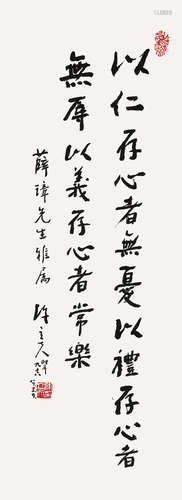 以仁存心者無憂以禮存心者
無辱以義存心者常樂
薛瑋先生雅屬